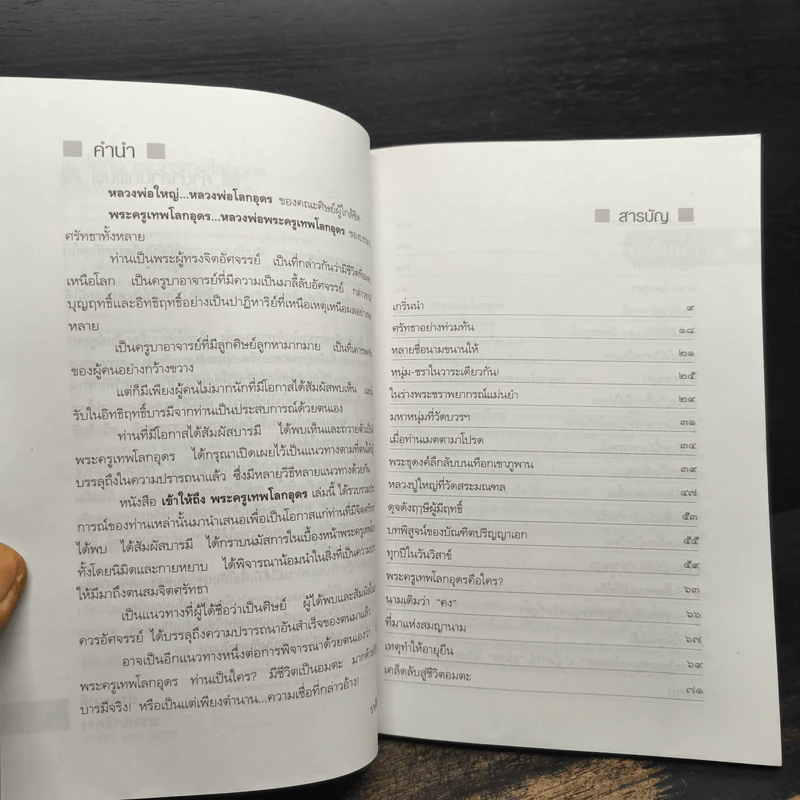 คำนำ
หลวงพ่อใหญ่...หลวงพ่อโลกอุดร ของคณะศิษย์ผู้ใกล้ชิด
พระครูเทพโลกอุดร...หลวงพ่อพระครูเทพโลกอุดร
ศรัทธาทั้งหลาย
ท่านเป็นพระผู้ทรงจิตอัศจรรย์ เป็นที่กล่าวกันว่ามีชีวิตที่
เหนือโลก เป็นครูบาอาจารย์ที่มีความเป็นมาลี้ลับอัศจรรย์
บุญฤทธิ์และอิทธิฤทธิ์อย่างเป็นปาฏิหาริย์ที่เหนือเหตุเหนือผล
หลาย
เป็นครูบาอาจารย์ที่มีลูกศิษย์ลูกหามากมาย
ของผู้คนอย่างกว้างขวาง
แต่ก็มีเพียงผู้คนไม่มากนักที่มีโอกาสได้สัมผัสพบเห็น
รับในอิทธิฤทธิ์บารมีจากท่านเป็นประสบการณ์ด้วยตนเอง
ท่านที่มีโอกาสได้สัมผัสบารมี ได้พบเห็นและถวายตัว
พระครูเทพโลกอุดร ได้กรุณาเปิดเผยไว้เป็นแนวทางตามที่
บรรลุถึงในความปรารถนาแล้ว ซึ่งมีหลายวิธีหลายแนวทางด้วยกัน
หนังสือ เข้าให้ถึง พระครูเทพโลกอุดร เล่มนี้ ได้รวบรวม
การณ์ของท่านเหล่านั้นมานำเสนอเพื่อเป็นโอกาสแก่ท่านที่มีจิตศรัทธา
ได้พบ ได้สัมผัสบารมี ได้กราบนมัสการในเบื้องหน้าพระครูเทพ
ทั้งโดยนิมิตและกายหยาบ ได้พิจารณาน้อมนำในสิ่งที่เป็นความ
ให้มีมาถึงตนสมจิตศรัทธา
เป็นแนวทางที่ผู้ได้ชื่อว่าเป็นศิษย์ ผู้ได้พบและสัมผัส
ควรอัศจรรย์ ได้บรรลุถึงความปรารถนาอันสำเร็จของตนมาแล้ว
อาจเป็นอีกแนวทางหนึ่งต่อการพิจารณาด้วยตนเองว่า
พระครูเทพโลกอุดร ท่านเป็นใคร? มีชีวิตเป็นอมตะ มากด้วย
บารมีจริง! หรือเป็นแต่เพียงตำนาน...ความเชื่อที่กล่าวอ้าง!
สารบัญ
เกริ่นนำ ๙
ศรัทธาอย่างท่วมท้น ๑๘
หลายชื่อนามขนานให้ ๒๑
หนุ่ม-ชราในวาระเดียวกัน! ๒๕
ในร่างพระชราพยากรณ์แม่นยำ ๒๙
มหาหนุ่มที่วัดบวรฯ ๓๑
เมื่อท่านเมตตามาโปรด ๓๔
พระธุดงค์ลึกลับบนเทือกเขาภูพาน ๓๙
หลวงปู่ใหญ่ที่วัดสระมณฑล ๔๗
ดุจดังฤาษีผู้มีฤทธิ์ ๕๓
บทพิสูจน์ของบัณฑิตปริญญาเอก ๕๕
ทุกปีในวันวิสาข์ ๕๙
พระครูเทพโลกอุดรคือใคร? ๖๓
นามเดิมว่า "คง" ๖๖
ที่มาแห่งสมญานาม ๖๗
เหตุทำให้อายุยืน ๖๙
เคล็ดลับสู่ชีวิตอมตะ ๗๑